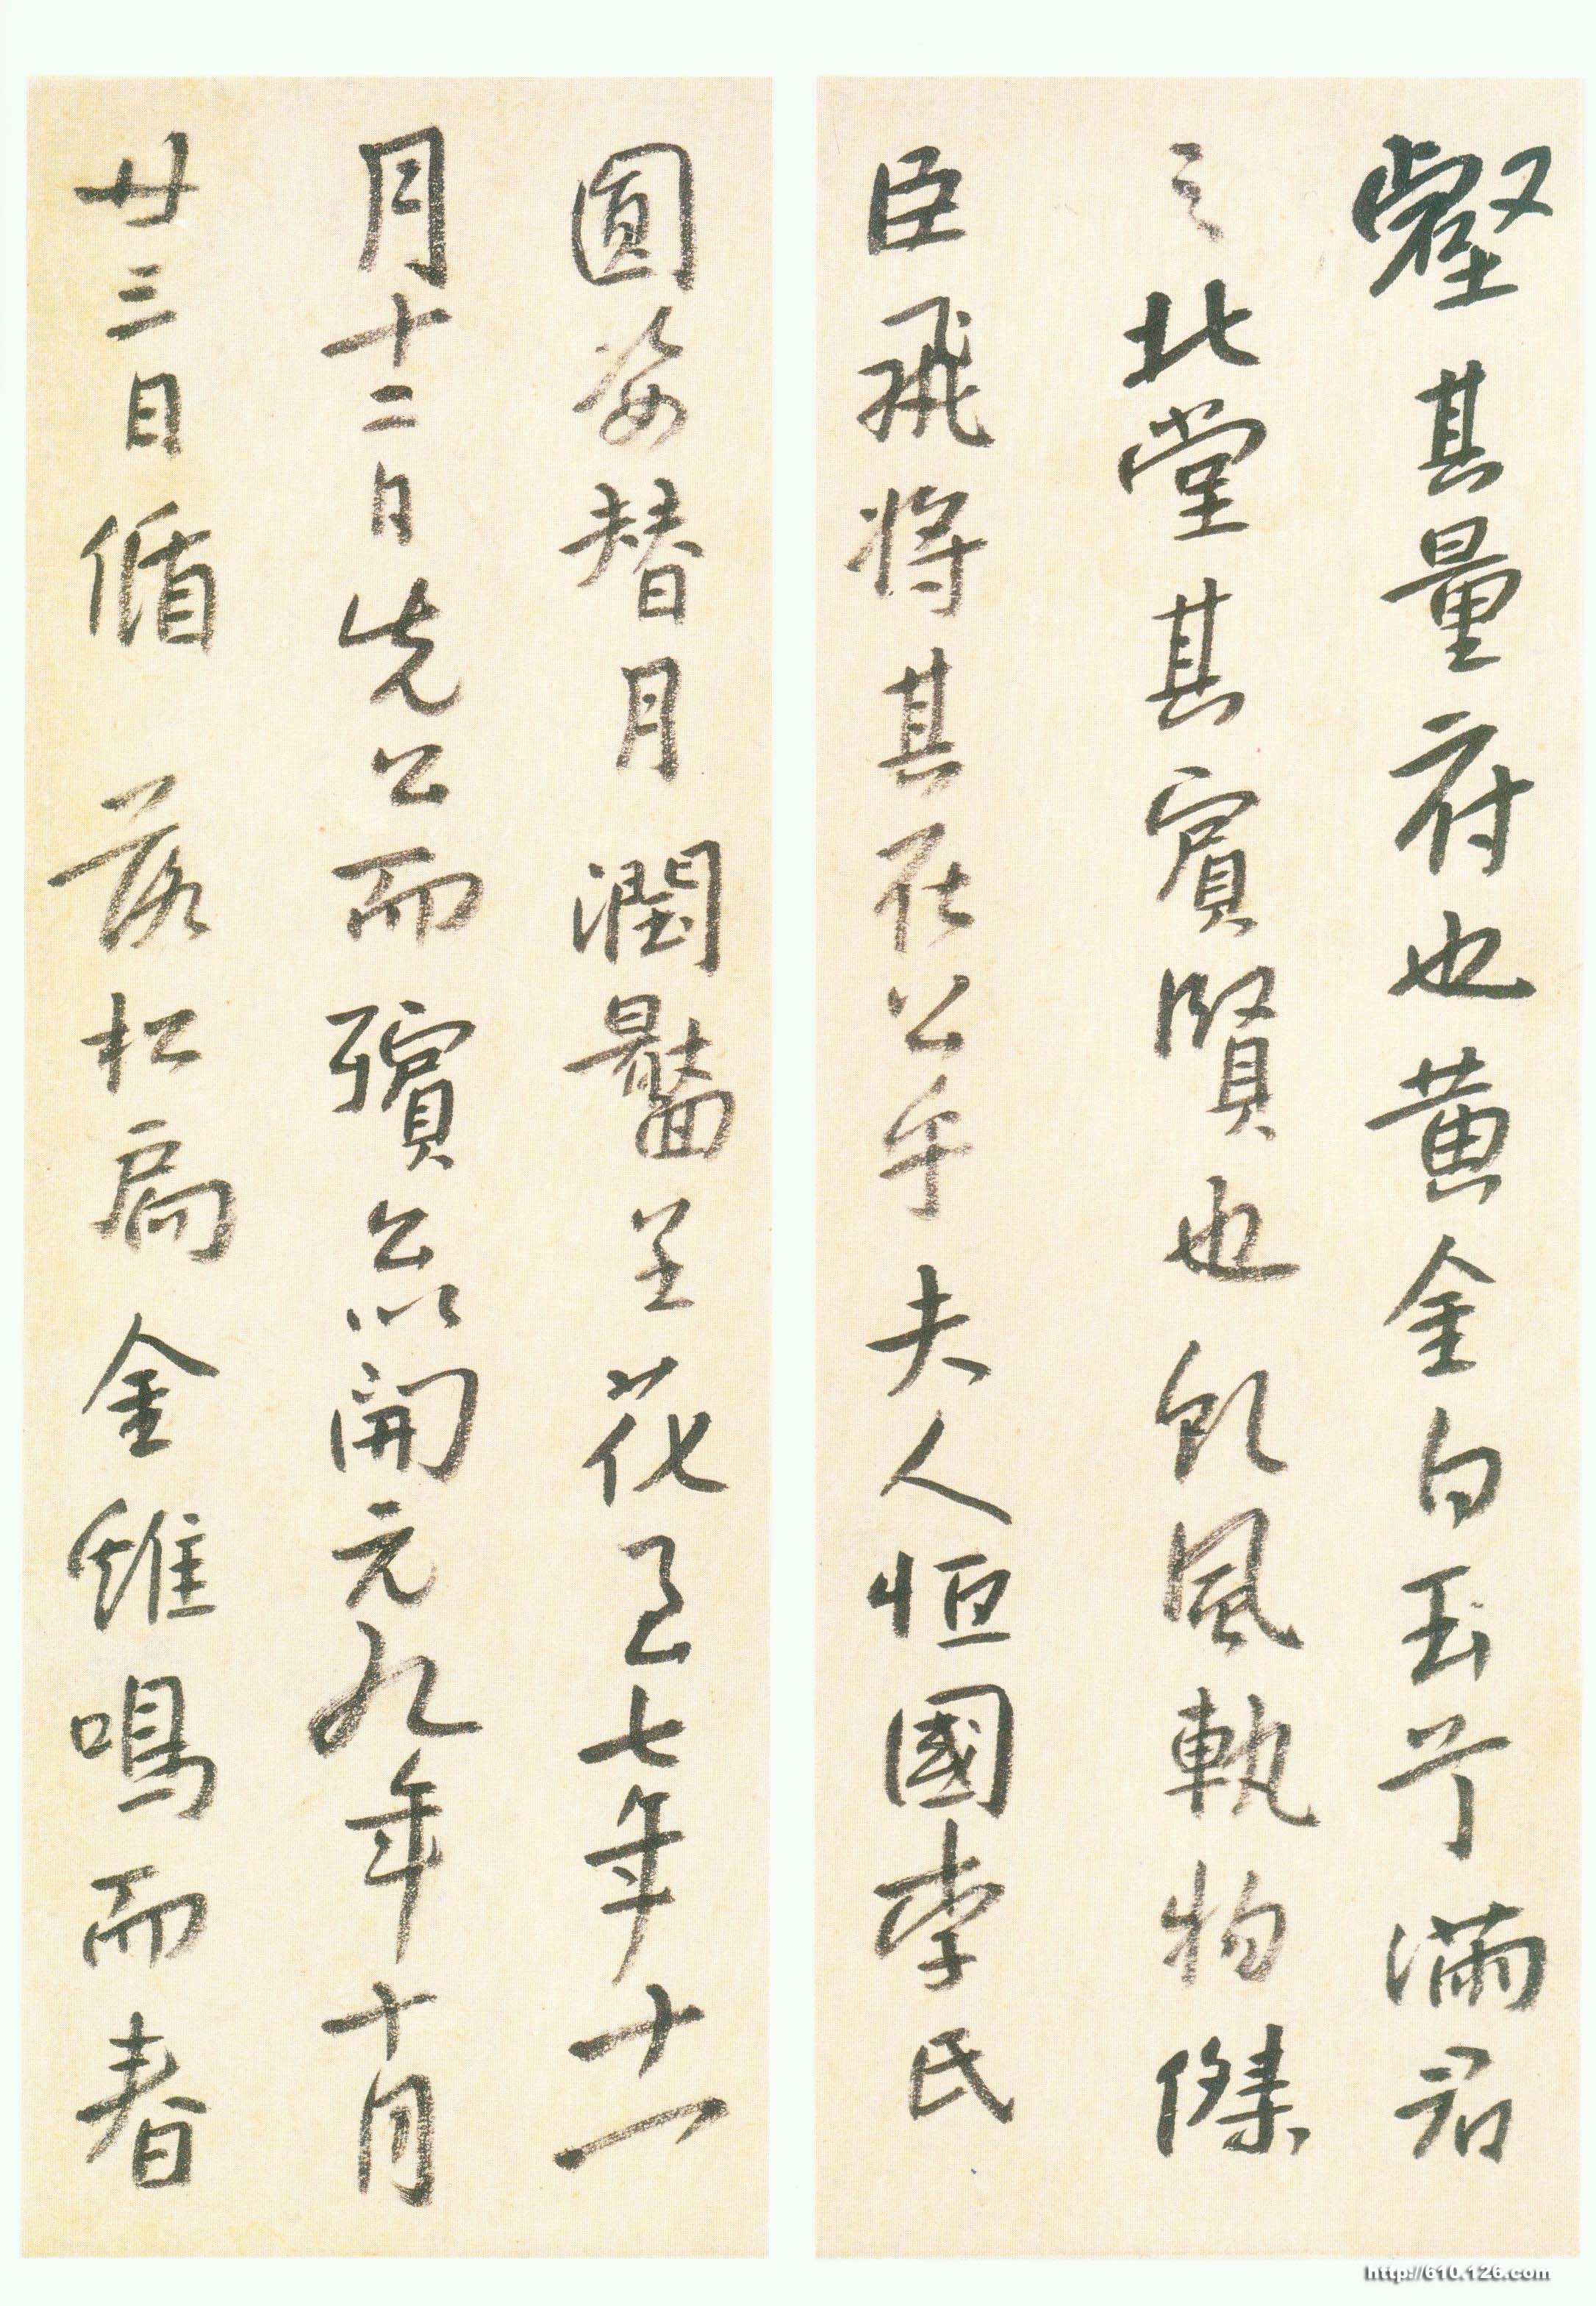 壑其量府也黃金白玉滿君
之北堂其賓賢也飲風軌物傑
臣飛將其在公乎夫人恒國李氏
圓姿替月潤臉呈花七年十一
月十二日先公而殯以開元九年十月
廿三日循落松扃金雞鳴而春
http://610.126.com